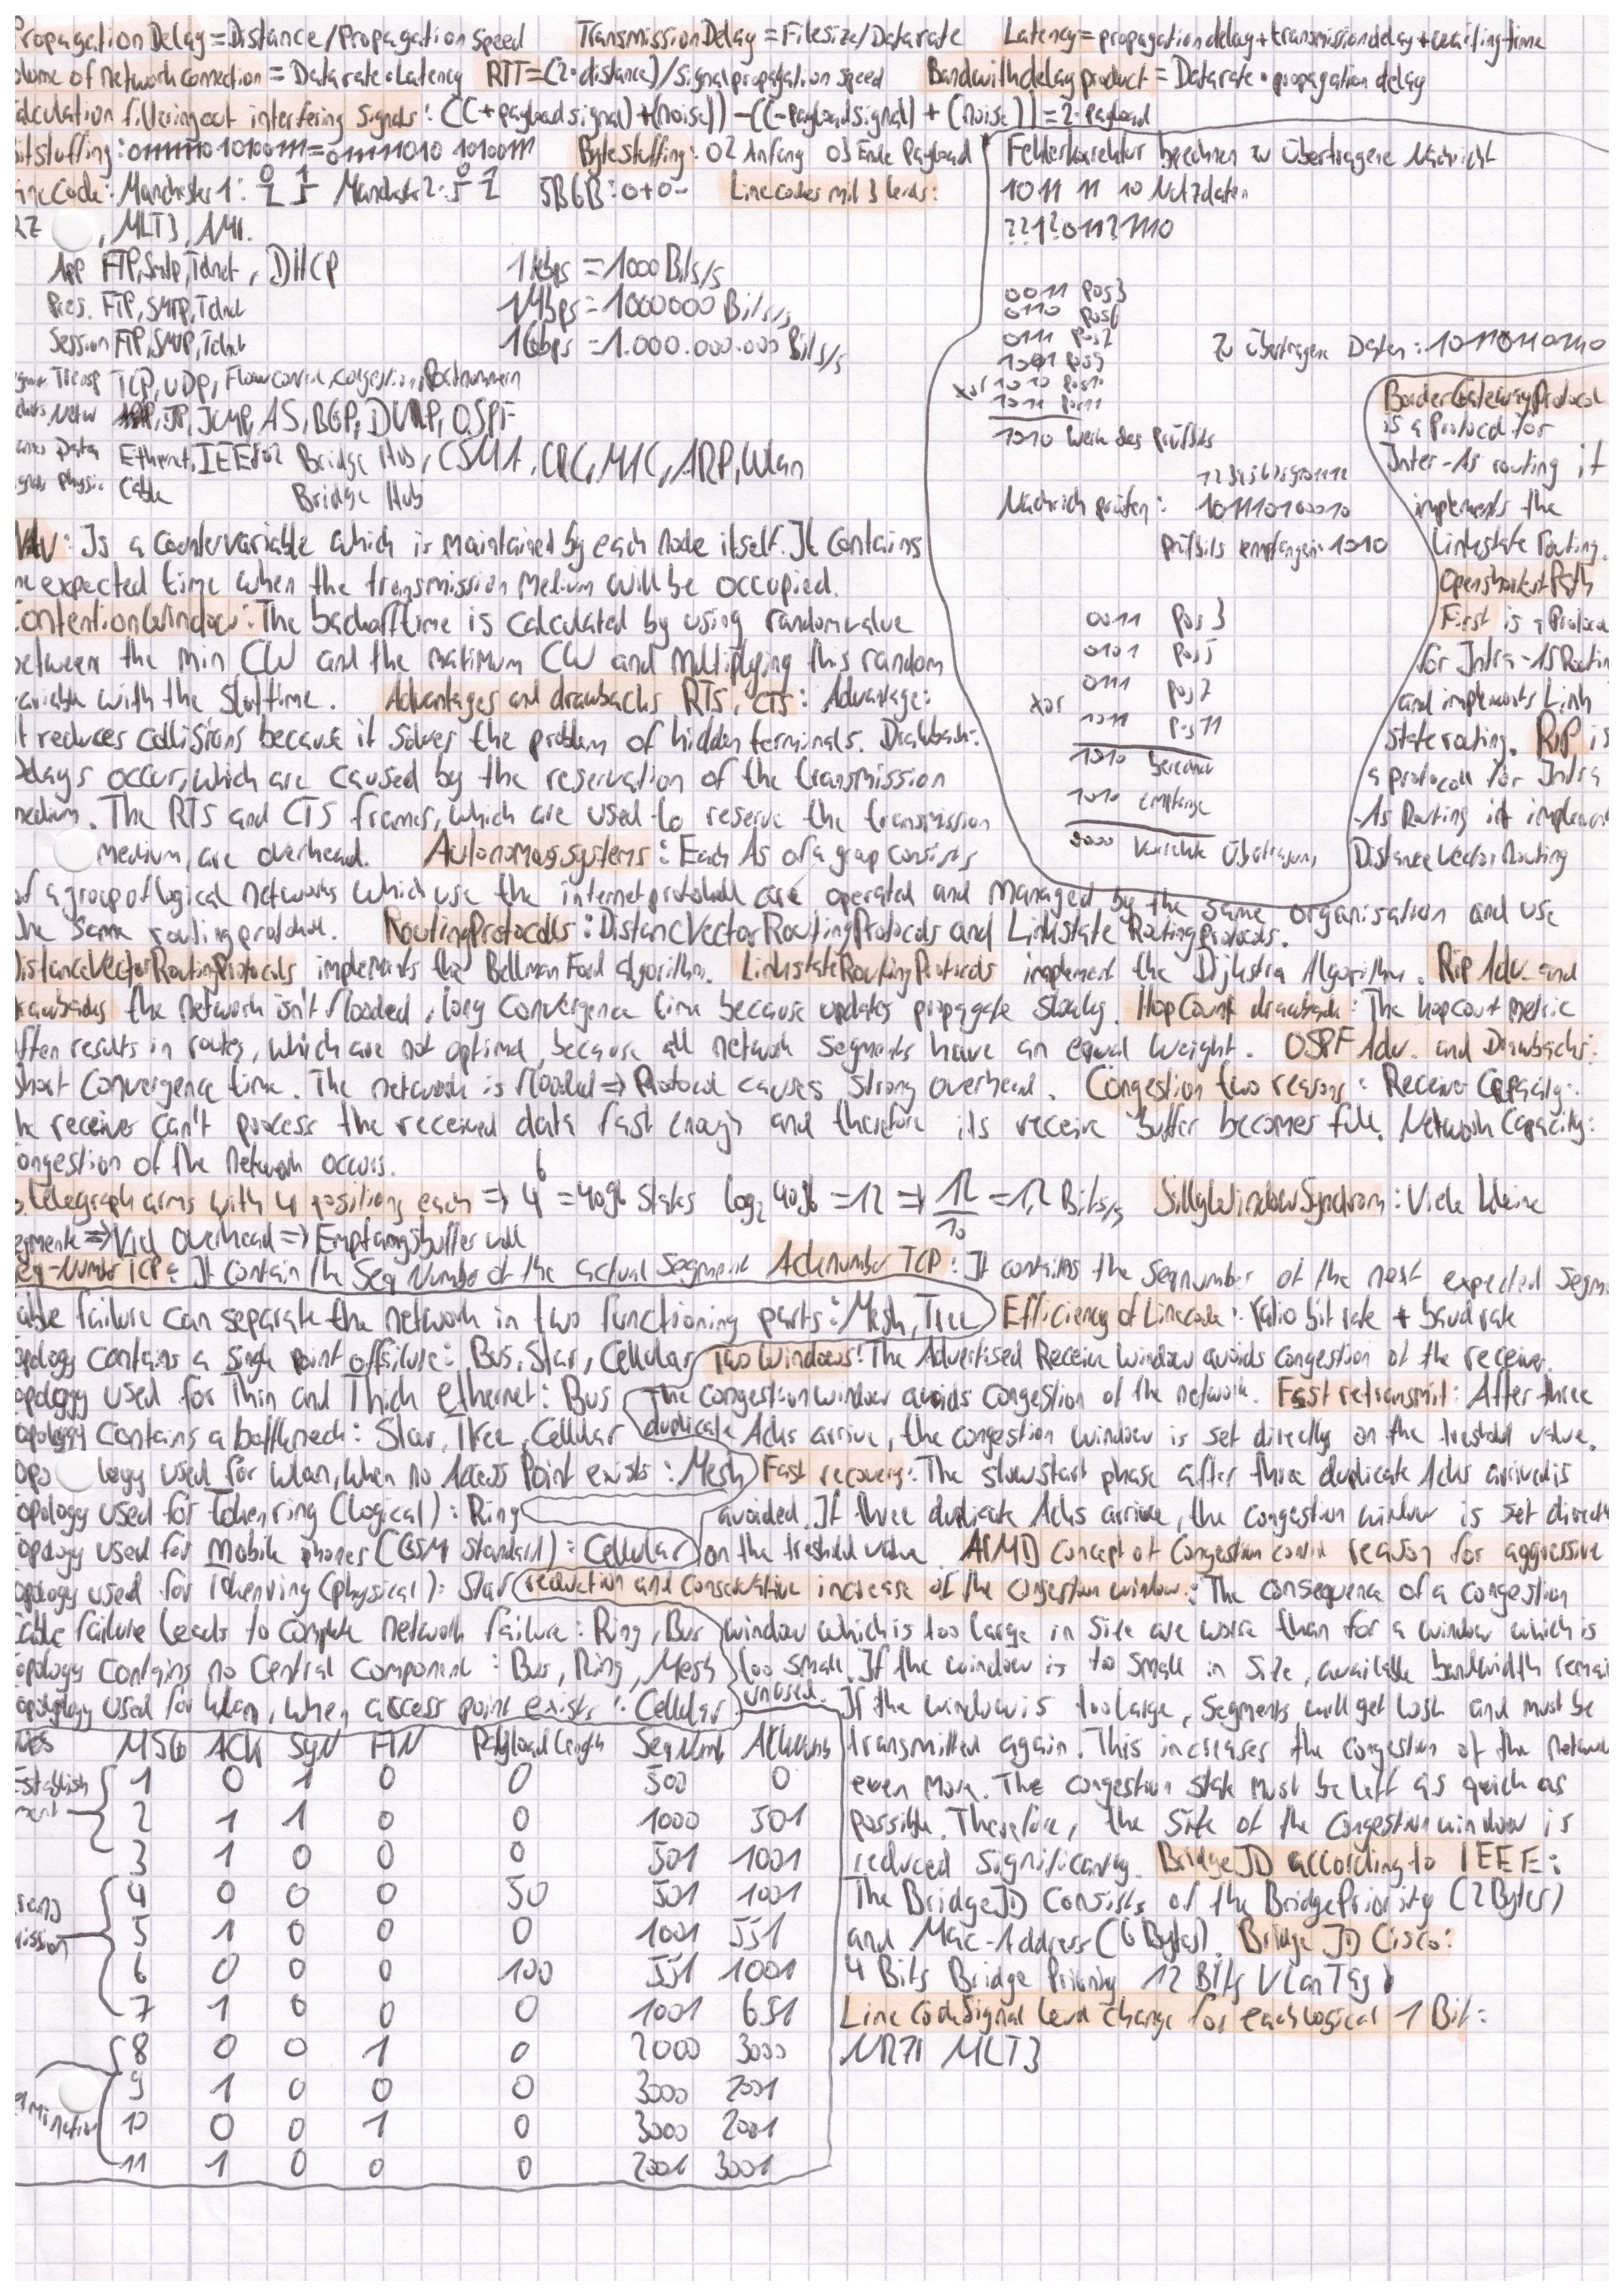 Propagation Delay = Distance/Propagation Speed Transmission Delay = Filesize/Datarate Latency = propagation delay + transmission delay + waiting time
olume of network connection = Data rate · Latency RTT = (2·distance)/Signal propagation speed Bandwith delay product = Datarate · propagation delay
alculation filtering out interfering Signals: ((+payload signal)+(noise)) - ((-payload signal) + (noise)) = 2·payload
Bytestuffing: 02 Anfang 03 Ende Payload
Line Code: Manchester 1: Manchester 2: 5B6B: 0+0- Linecodes mit 3 levels:
RZ , MLT3, AMI.
App FTP, Smtp, Telnet, DHCP 1 kbps = 1000 Bits/s
Pres. FTP, SMTP, Telnet 1 Mbps = 1000000 Bits/s
Session FTP, SMTP, Telnet 1Gbps = 1.000.000.000 Bits/s
Transp TCP, UDP, Flowcontrol, Congestion, Portnummern
Netw IP, ICMP, AS, BGP, OSPF
Data Ethernet, IEEE802 Bridge Hub, CSMA, CRC, MAC, ARP, Wlan
Physic Cable Bridge Hub
Fehlerkorrektur berechnen zu übertragene Nachricht
1011 11 10 Nutzdaten
??1?011?1110
0011 Pos3
0110 Pos6
0111 Pos7
1001 Pos9
xor 1010 Pos10
1011 Pos11
1010 Werte des Prüfbits
Zu übertragene Daten: 101101101110
Nachrich prüfen: 101110100010
Prüfbits empfangen: 1010
0011 Pos 3
0101 Pos 5
0111 Pos 7
xor 1011 Pos 11
1010 berechnet
1010 empfange
0000 korrekte Übertragung
BorderGatewayProtocol
is a Protocol for
Inter-As routing it
implements the
Linkstate routing.
Openshortest Path
First is a Protoco
for Intra-AS Routin
and implements Link
state routing. RIP is
a protocoll for Intra
-As Routing it implemen
Distance Vector Routing
NAV: Is a countervariable which is maintained by each node itself. It contains
he expected time when the transmission Medium will be occupied.
ContentionWindow: The backofftime is calculated by using randomvalue
between the min CW and the maximum CW and multiplying this random
variable with the Slottime. Advantages and drawbacks RTS, CTS: Advantage:
It reduces collisions because it solves the problem of hidden terminals. Drawback:
Delays occur, which are caused by the reservation of the transmission
medium. The RTS and CTS frames, which are used to reserve the transmission
medium, are overhead. Autonomous systems: Each As of a group consists
of a group of logical networks which use the internetprotokoll are operated and managed by the same organisation and use
the same routingprotokoll. RoutingProtocolls: DistancVectorRoutingProtocols and Linkstate RoutingProtocols.
DistanceVectorRoutingProtocols implements the Bellman Ford algorithm. LinkstateRoutingProtocols implement the Dijkstra Algorithm. Rip Adv. and
rawbacks the network isn't flooded, long convergence time because updates propagate slowly. HopCount drawback: The hopcount metric
often results in routes, which are not optimal, because all network segments have an equal weight. OSPF Adv. and Drawbacks:
Short Convergence time. The network is flooded => Protocol causes strong overhead. Congestion two reasons: Receiver Capacity:
he receiver can't process the received data fast enough and therefore its receive buffer becomes full. Network Capacity:
ongestion of the network occurs.
6 telegraph arms with 4 positions each => 4^6 = 4096 States log2 4096 = 12 => 12/10 = 1,2 Bits/s SillyWindowSyndrom: Viele kleine
egmente => Viel Overhead => Empfangsbuffer voll
Seq-Number TCP: It contain the Seq Number of the actual Segment Acknumber TCP: It contains the Seqnumber of the next expected Segm
able failure can separate the network in two functioning parts: Mesh, Tree Efficiency of Linecode: ratio bit rate + baud rate
opology contains a single point of failure: Bus, Star, Cellular Two Windows: The Advertised Receive Window avoids congestion of the receiver.
opology used for Thin and Thick ethernet: Bus The congestion window avoids congestion of the network. Fast retransmit: After three
opology contains a bottleneck: Star, Tree, Cellular duplicate Acks arrive, the congestion window is set directly on the treshold value.
opology used for Wlan, when no Access Point exists: Mesh Fast recovery: The slowstart phase after three duplicate Acks arrived is
opology used for Tokenring (logical): Ring avoided. If three duplicate Acks arrive, the congestion window is set directl
opology used for mobile phones (GSM standard): Cellular on the treshold value. AIMD concept of Congestion control reason for aggressive
opology used for Tokenring (physical): Star reduction and conservative increase of the congestion window: The consequence of a congestion
cable failure leads to complete network failure: Ring, Bus window which is too large in Size are worse than for a window which is
opology contains no Central Component: Bus, Ring, Mesh too small. If the window is to small in Size, available bandwidth remai
opology used for Wlan, when access point exists: Cellular unused. If the window is too large, Segments will get lost and must be
MSG ACK SYN FIN Payload length SeqNumb Acknumb transmitted again. This increases the congestion of the networ
1 0 1 0 0 500 0 even more. The congestion state must be left as quick as
2 1 1 0 0 1000 501 possible. Therefore, the Size of the Congestion window is
3 1 0 0 0 501 1001 reduced significantly. BridgeID according to IEEE:
4 0 0 0 50 501 1001 The BridgeID Consists of the BridgePriority (2Bytes)
5 1 0 0 0 1001 551 and Mac-Address (6 Bytes). Bridge ID Cisco:
6 0 0 0 100 551 1001 4 Bits Bridge Priority 12 Bits Vlan Tag
7 1 0 0 0 1001 651 Line code Signal level change for each logical 1 Bit:
8 0 0 1 0 2000 3000 NRZI MLT3
9 1 0 0 0 3000 2001
10 0 0 1 0 3000 2001
11 1 0 0 0 2001 3001